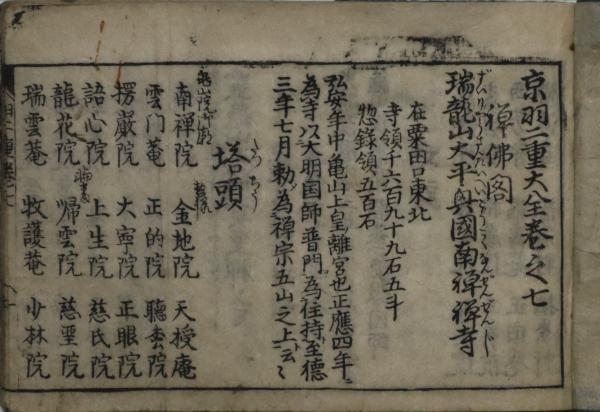 京羽二重大全巻之七
禅佛閣
瑞龍山大平興國南禅禅寺
在粟田口東北
寺領千六百九十九石五斗
惣録領五百石
弘安年中亀山上皇離宮也正應四年ニ
為寺以大明国師普門為住持至德
三年七月勅為禅宗五山之上云々
塔頭
たつちう
南禅院 金地院 天授庵
雲門菴 正的院 聽松院
楞嚴院 大寧院 正眼院
語心院 上生院 慈氏院
龍花院 歸雲院 慈聖院
瑞雲菴 牧護菴 少林院